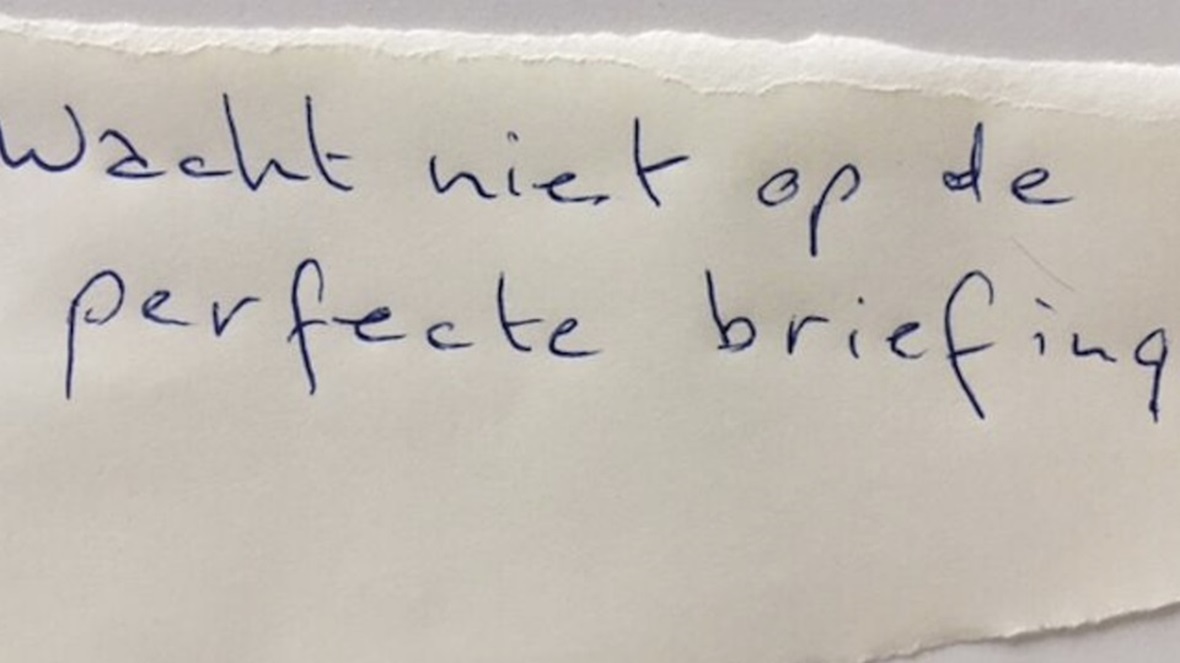 Wacht niet op de
perfecte briefing